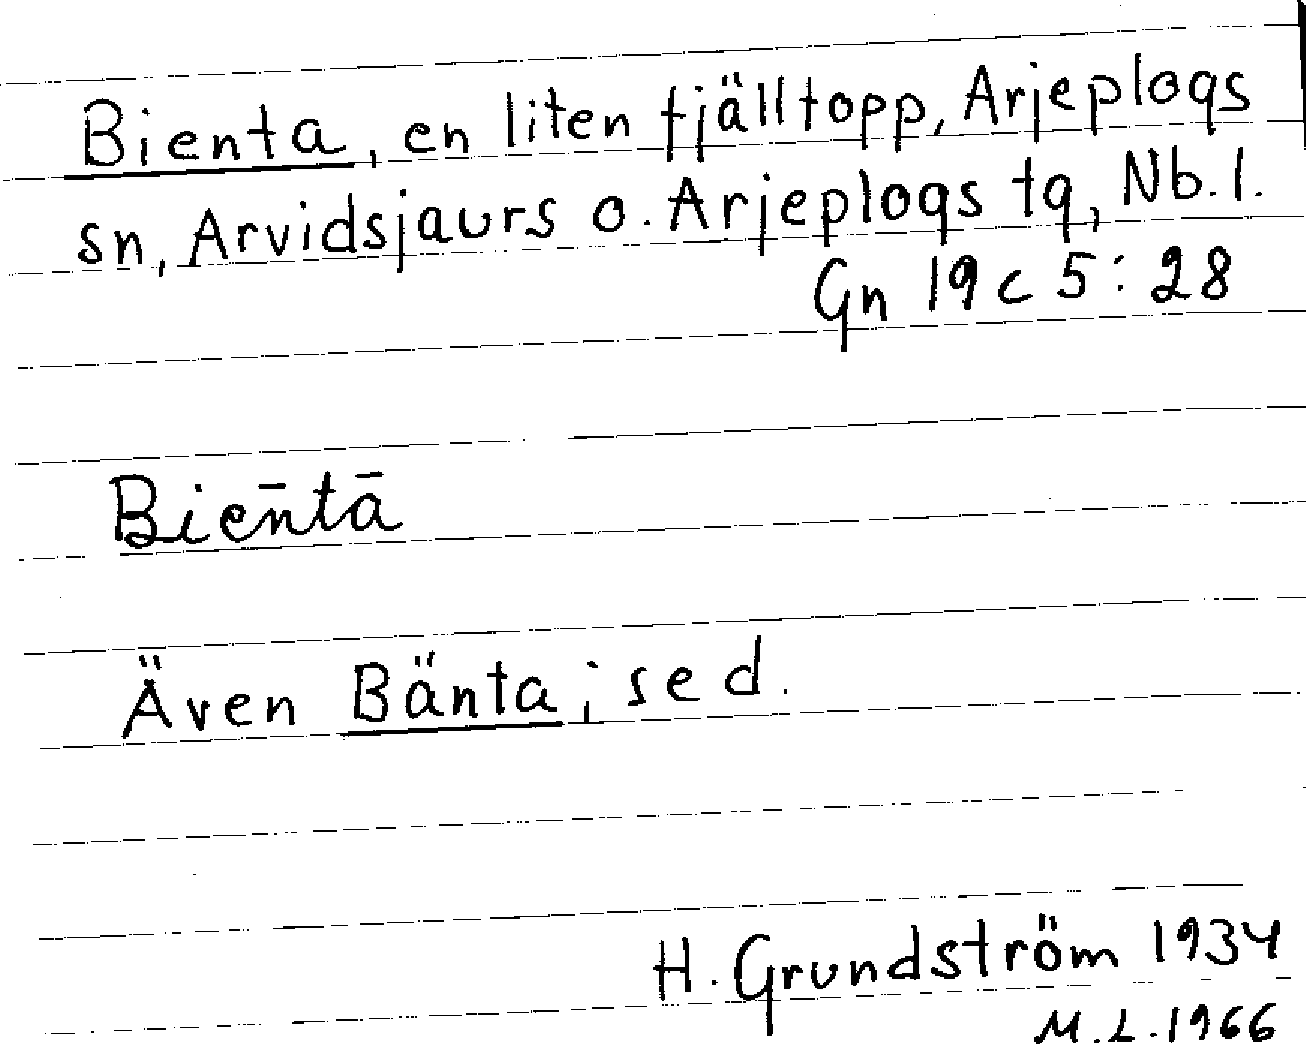 Bienta, en liten fjälltopp, Arjeplogs
sn, Arvidsjaurs o. Arjeplogs tg, Nb. l.
Gn 19 c 5:28
Bien̄tā
Även Bänta; se d.
H. Grundström 1934
M.L. 1966